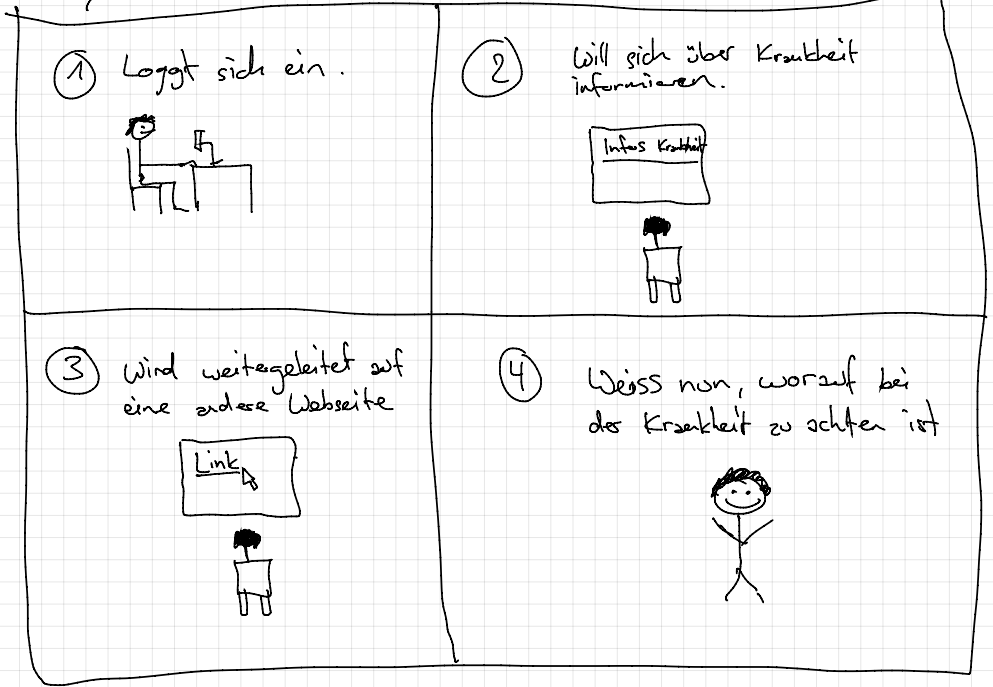 1 Loggt sich ein.
2 Will sich über Krankheit
informieren.
Infos Krankheit
3 Wird weitergeleitet auf
eine andere Webseite
Link
4 Weiss nun, worauf bei
der Krankheit zu achten ist